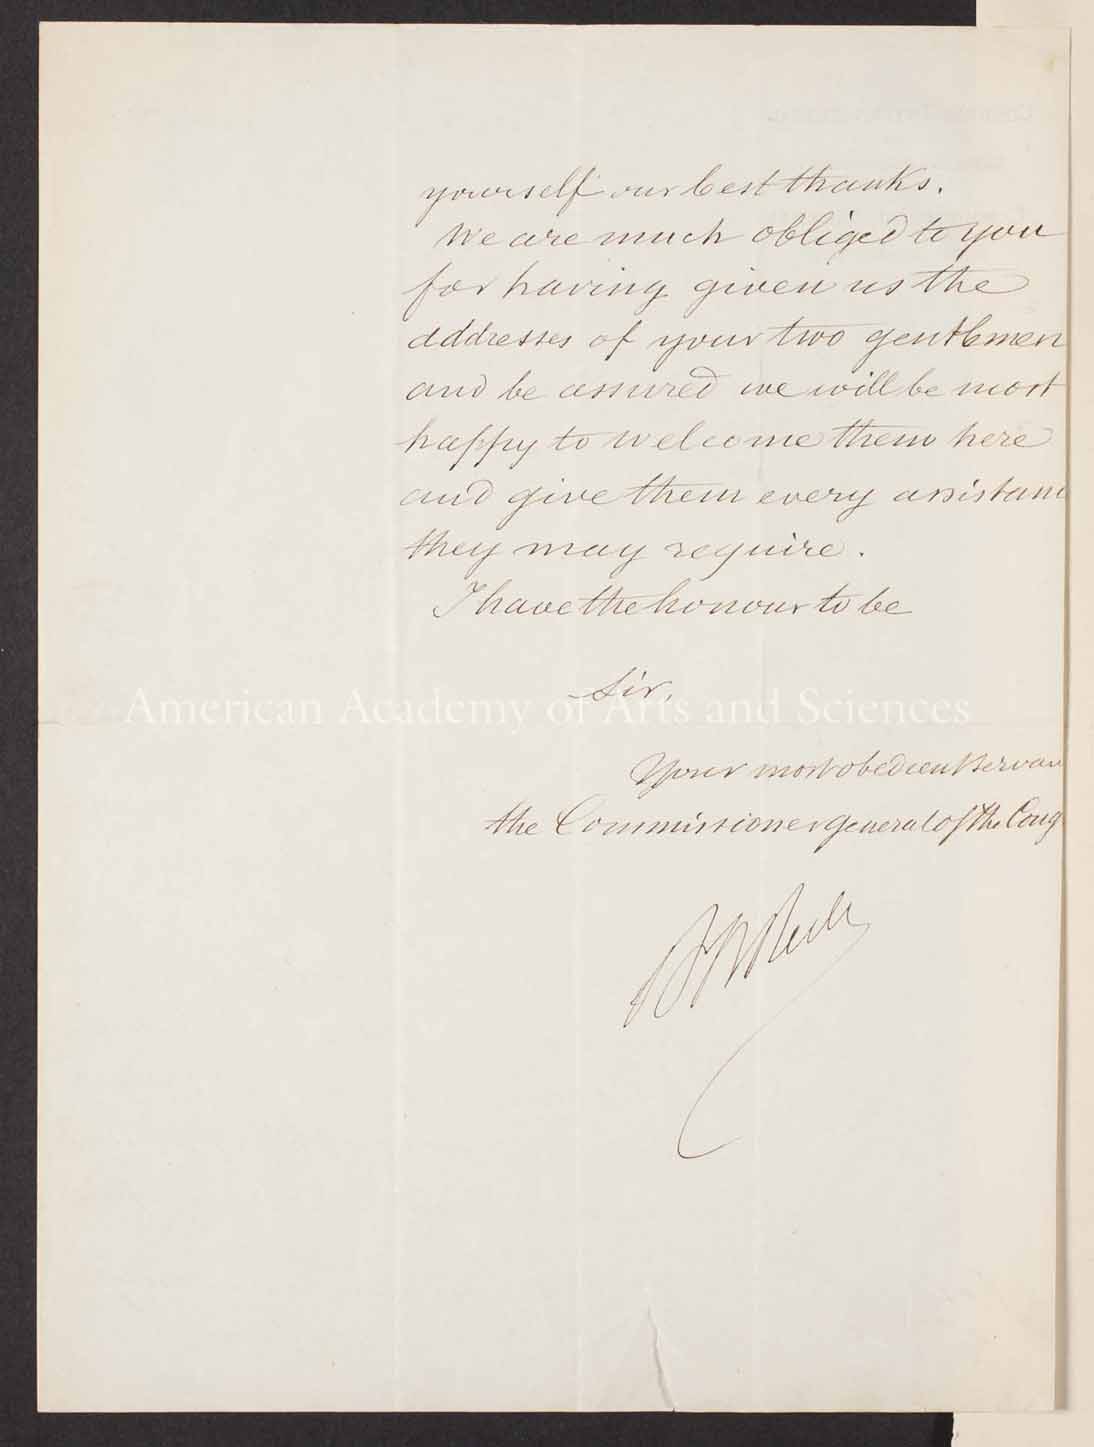 yourself our best thanks.
We are much obliged to you
for having given us the
adddresses of your two gentlemen
and be assured we will be most
happy to welcome them here
and give them every assistan
they may require.
I have the honour to be
Sir,
American Academy of Arts and Sciences
Your most obedient servan
the Commissioner general of the Cong